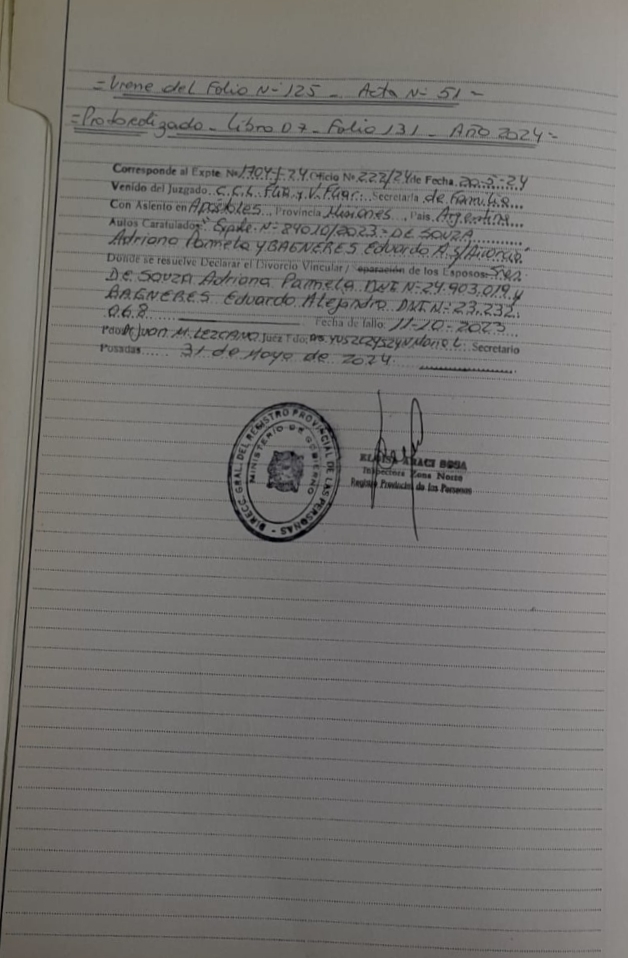 =Viene del Folio N- 125 - Acta N- 51 -
=Protocolizado - Libro D7 - Folio 131 - Año 2024=
Corresponde al Expte. Nº 1704/24 Oficio Nº 222/24 de Fecha 20-5-24
Venido del Juzgado C.C.L. Flia y V. Fliar. Secretaría de Familia
Con Asiento en Apóstoles, Provincia Misiones, País Argentina
Autos Caratulados "Expte. N- 89010/2023 - DE SOUZA
Adriana Pamela y BAENERES Eduardo A. s/Divorcio"
Donde se resuelve Declarar el Divorcio Vincular / Separación de los Esposos: Sres.
DE SOUZA Adriana Pamela DNI N- 24.903.019 y
BAENERES Eduardo Alejandro DNI N- 23.232.
068 Fecha de fallo: 11-10-2023
Fdo. Dr Juan M. LEZCANO Juez Fdo. Secretario
Posadas 31 de Mayo de 2024
DIRECC. GRAL. DEL REGISTRO PROVINCIAL DE LAS PERSONAS -
MINISTERIO DE GOBIERNO
ARACI SOSA
Inspectora Zona Norte
Registro Provincial de las Personas